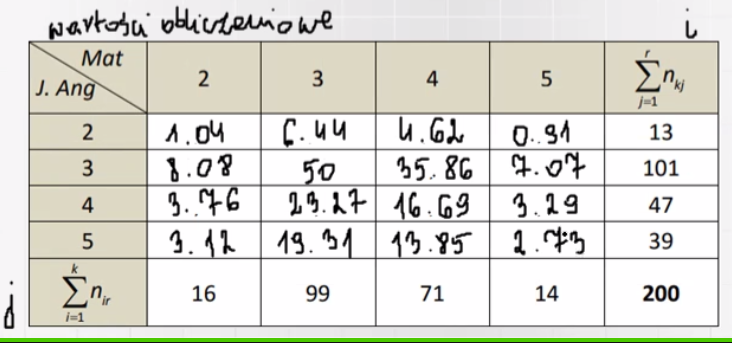 wartości obliczeniowe i
Mat
J. Ang 2 3 4 5 r ∑ n_kj j=1
2 1.04 6.44 4.62 0.91 13
3 8.08 50 35.86 7.07 101
4 3.76 23.27 16.69 3.29 47
5 3.12 19.31 13.85 2.73 39
j k ∑ n_ir i=1 16 99 71 14 200